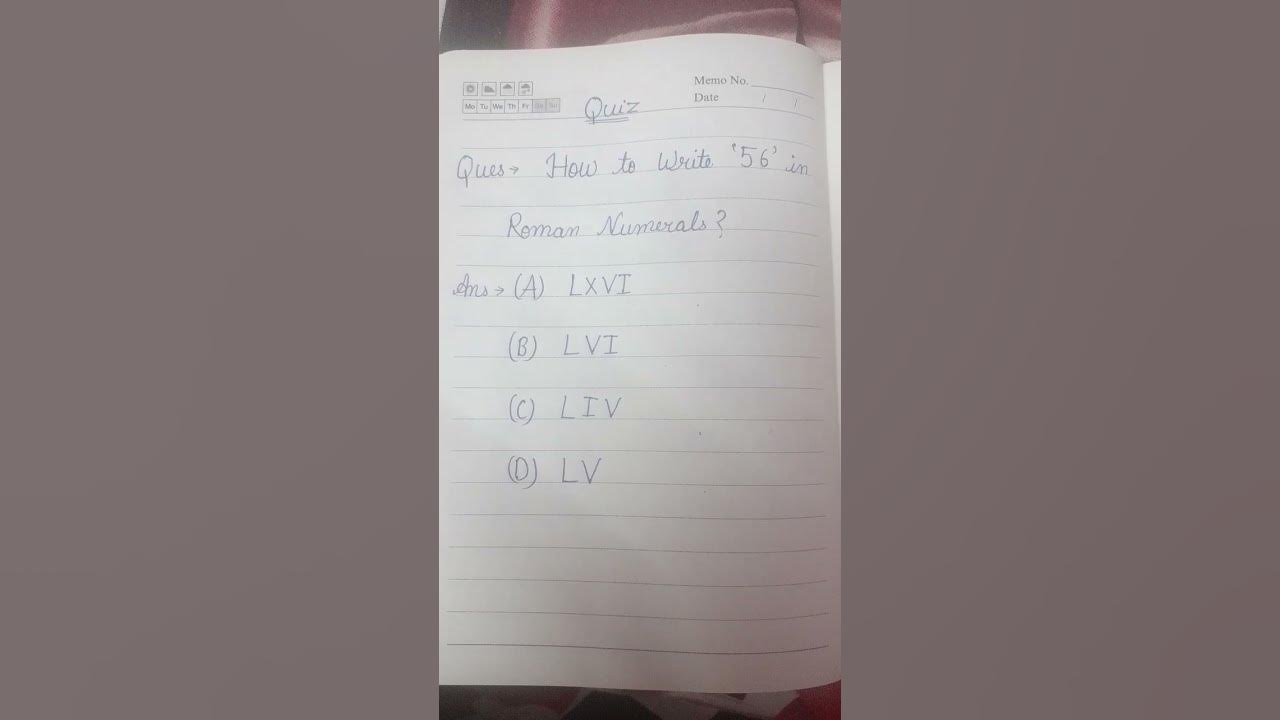 Memo No.
Mo Tu We Th Fr Sa Su
Date / /
Quiz
Ques→ How to Write '56' in
Roman Numerals?
Ans→ (A) LXVI
(B) LVI
(C) LIV
(D) LV